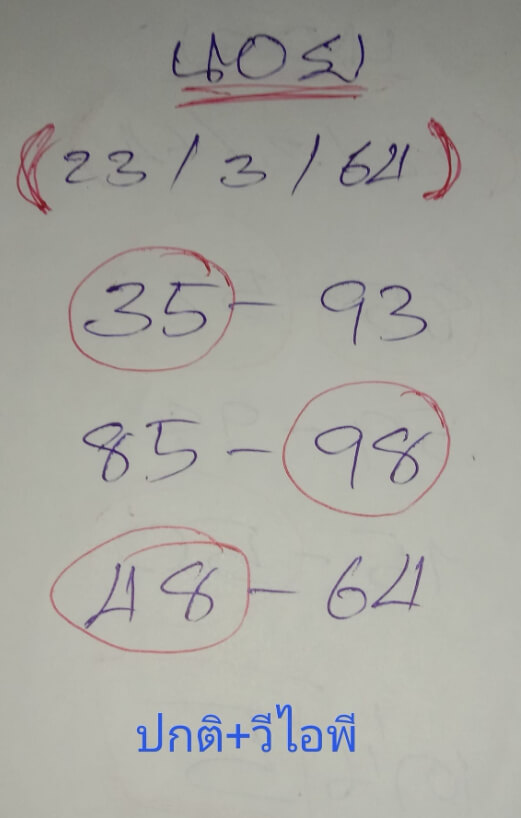 นอย
(23/3/64)
35 - 93
85 - 98
48 - 64
ปกติ+วีไอพี